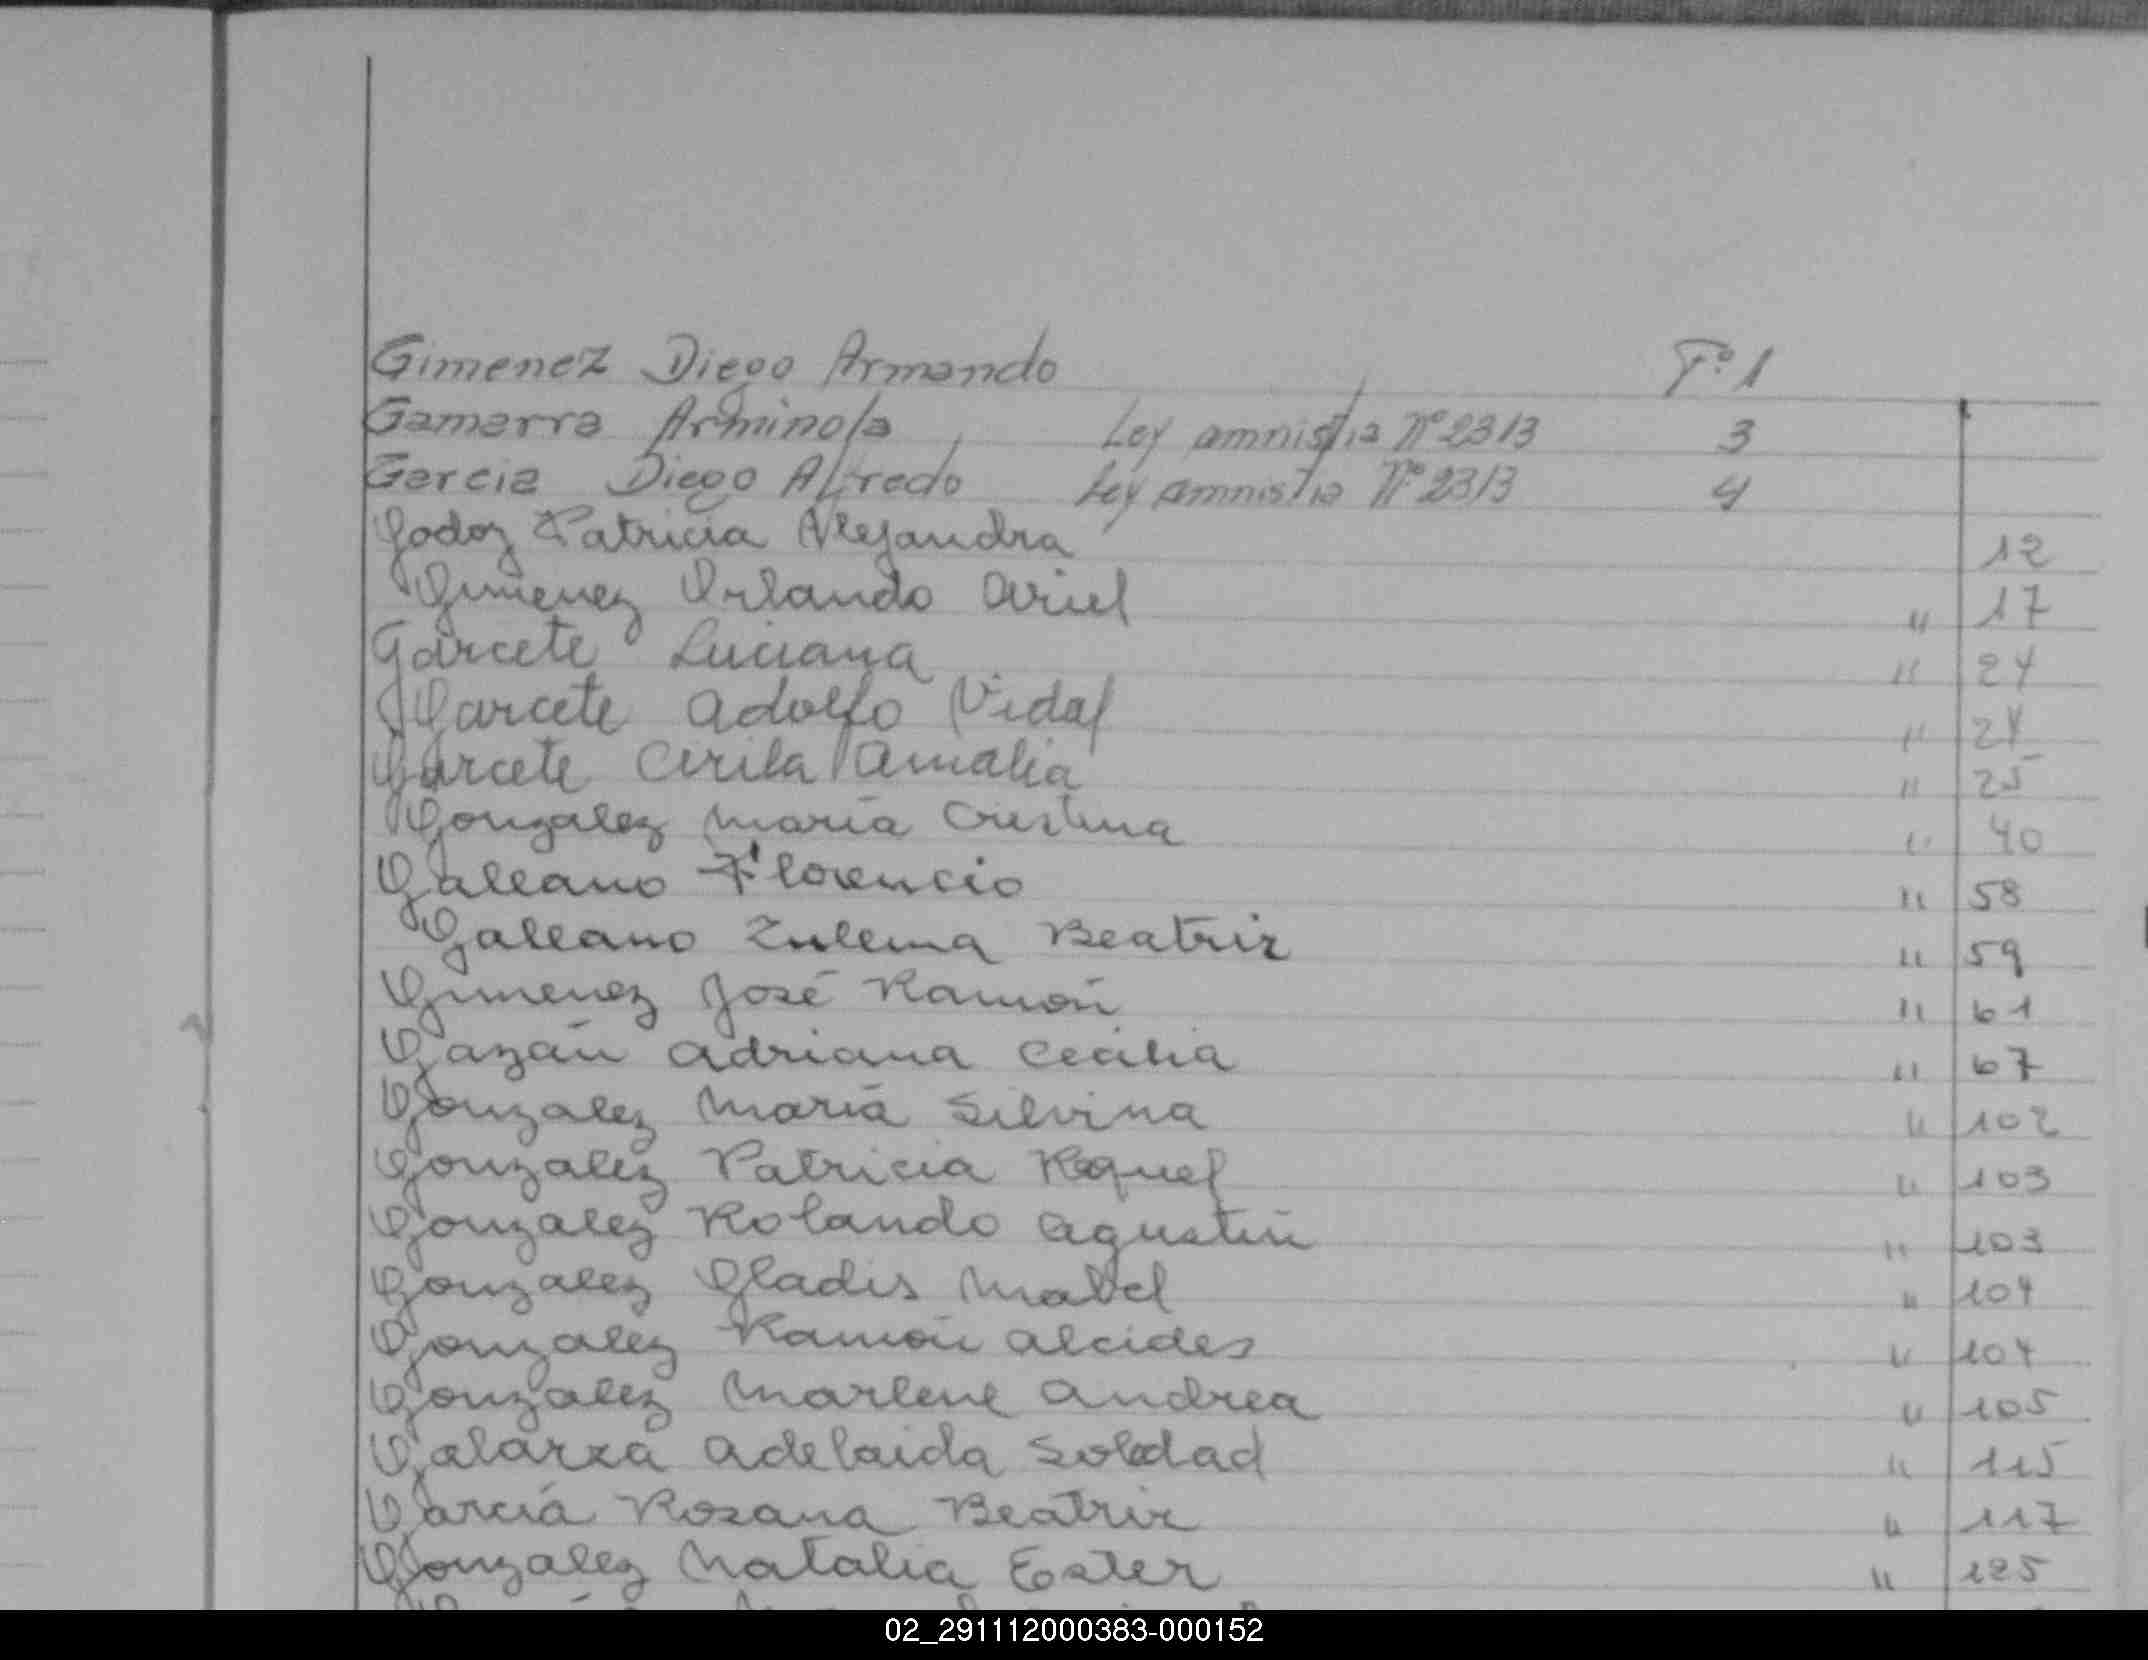 Gimenez Diego Armando Fº 1
Gamarra Arminda Ley amnistia Nº 2313 3
Garcia Diego Alfredo Ley amnistia Nº 2313 4
Godoy Patricia Alejandra 12
Gimenez Orlando Ariel " 17
Garcete Luciana " 24
Garcete Adolfo Vidal " 24
Garcete Cirila Amalia " 25
Gonzalez María Cristina " 40
Galeano Florencio " 58
Galeano Zulema Beatriz " 59
Gimenez José Ramón " 61
Gazán Adriana Cecilia " 67
Gonzalez María Silvina " 102
Gonzalez Patricia Raquel " 103
Gonzalez Rolando Agustín " 103
Gonzalez Gladis Mabel " 104
Gonzalez Ramón Alcides " 104
Gonzalez Marlene Andrea " 105
Galarza Adelaida Soledad " 115
García Rosana Beatriz " 117
Gonzalez Natalia Ester " 125
02_291112000383-000152